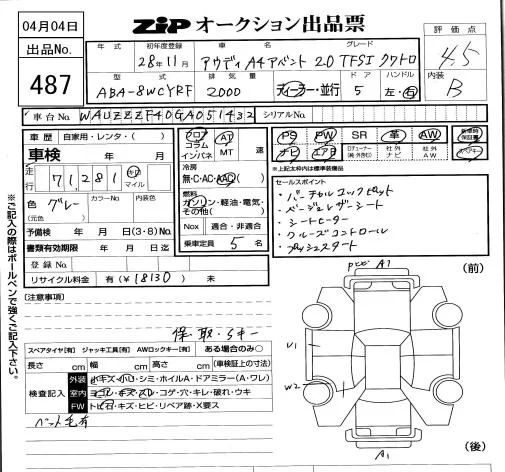 04月04日
ZiP オークション出品票
出品No.
487
年式 初年度登録 車名 グレード
28年11月 アウディ A4アバント 2.0 TFSI クワトロ
型式 排気量 ドア ハンドル
ABA-8WCYRF 2000 ディーラー・並行 5 左・右
評価点
4.5
内装
B
車台No. WAUZZZF40GA051432 シリアルNo.
車歴 自家用・レンタ・( )
車検 年 月
走行 71,281 km マイル
色 グレー カラーNo. 内装色
(元色)
予備検 年 月 日(3・8)No.
書類有効期限 年 月 日迄
登録No.
リサイクル料金 有(¥ 18130 )
フロア コラム インパネ
AT MT 速
冷房
無・C・AC・AAC
燃料
ガソリン・軽油・電気・その他( )
Nox 適合・非適合
乗車定員 5 名
PS PW SR 革 AW 新車時保証書
ナビ エアB 社外ナビ 社外AW スペアキー
*上記太枠内は標準装備品
セールスポイント
・バーチャルコックピット
・パージュレザーシート
・シートヒーター
・クルーズコントロール
・プッシュスタート
※ご記入の際はボールペンで強くご記入下さい。
(注意事項)
保・取・Sキー
スペアタイヤ[有] ジャッキ工具[有] AWロックキー[有] ある場合のみ○
長さ cm 幅 cm 高さ cm (車検証上の寸法)
検査記入
外装 小キズ・小凹・シミ・ホイルA・ドアミラー(A・ワレ)
室内 ヨゴレ・キズ・スレ・コゲ・穴・キレ・破れ・ウキ
FW トビ石・キズ・ヒビ・リペア跡・X要ス
ペット毛有
(前)
A1
U1
W2
A1
(後)